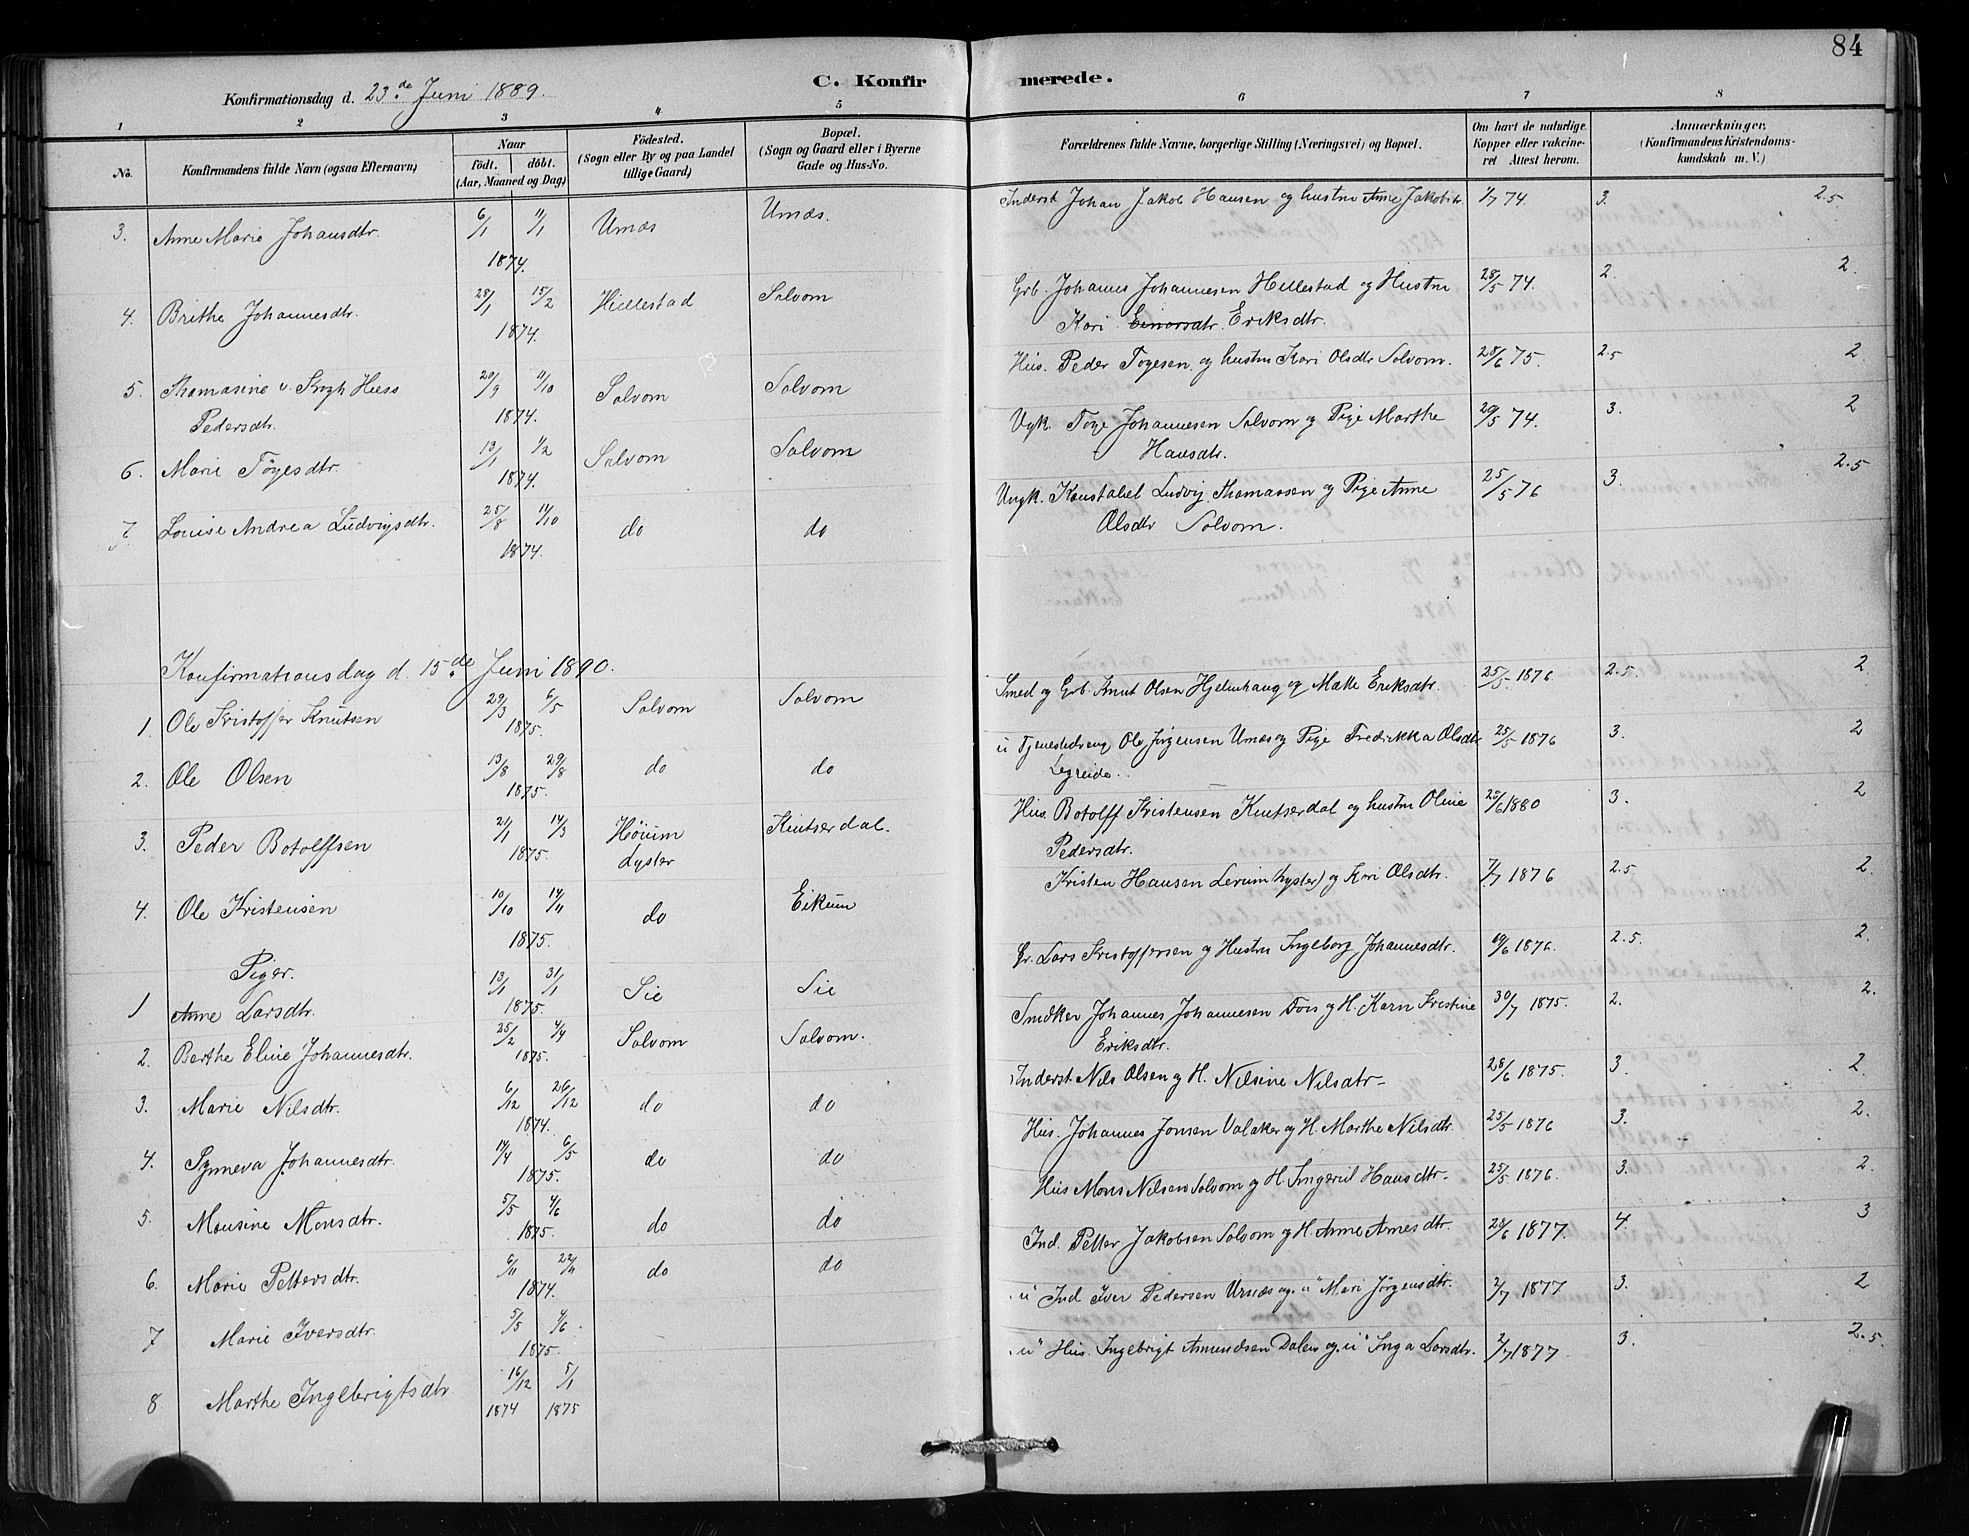 84
C. Konfirmerede.
Konfirmationsdag d. 23.de Juni 1889.
1 2 3 4 5 6 7 8
No. Konfirmandens fulde Navn (ogsaa Efternavn) Naar født. døbt. (Aar, Maaned og Dag) Födested. (Sogn eller By og paa Landet tillige Gaard) Bopæl. (Sogn og Gaard eller i Byerne Gade og Hus-No. Forældrenes fulde Navne, borgerlige Stilling (Næringsvei) og Bopæl. Om havt de naturlige Kopper eller vakcineret Attest herom. Anmærkninger. (Konfirmandens Kristendomskundskab m. V.)
3. Anne Marie Johansdtr. 6/1 11/1 1874. Urnæs Urnæs. Inderst Johan Jakob Hansen og hustru Anne Jakobsdtr. 1/7 74. 3. 2.5
4. Brithe Johannesdtr. 28/1 15/2 1874. Hillestad Solvorn Grb. Johannes Johannesen Hillestad og Hustru 28/5 74. 2. 2.
Kari Einarsdtr. Eriksdtr.
5. Thomasine v. Krogh Hess 20/9 11/10 1874. Solvorn Solvorn Hus. Peder Tøgesen og hustru Kari Olsdtr Solvorn. 28/6 75. 2.5 2
Pedersdtr.
6. Marie Tøgesdtr. 13/1 1/2 1874. Solvorn Solvorn Ugk. Tøge Johannesen Solvorn og Pige Marthe 20/5 74. 3. 2
Hansdtr.
7. Louise Andrea Ludvigsdtr. 25/8 11/10 1874. do do Ungk. Konstabel Ludvig Thomassen og Pige Anne 25/5 76 3. 2.5
Olsdtr Solvorn.
Konfirmationsdag d. 15.de Juni 1890.
1. Ole Kristoffer Knutsen 29/3 6/5 1875. Solvorn Solvorn Smed og Grb. Knut Olsen Hjelmhaug og Malle Eriksdtr. 25/5 1876 2.5. 2
2. Ole Olsen 13/8 29/8 1875. do do u Tjenestedreng Ole Jørgensen Urnæs og Pige Fredrikka Olsdtr 25/5 1876 3. 2
Legreide.
3. Peder Botolffsen 21/1 14/3 1875. Høium Lyster Knitserdal. Hus. Botolff Kristensen Knitserdal og hustru Oline 25/6 1880 3. 2
Pedersdtr.
4. Ole Kristensen 10/10 14/11 1875. do Eikum Kristen Hansen Lerum (Lyster) og Kari Olsdtr. 7/7 1876 2.5 2
Piger.
1 Anne Larsdtr. 13/1 31/1 1875. Sie Sie Gr. Lars Kristoffersen og Hustru Ingeborg Johannesdtr. 19/6 1876. 2.5. 2.
2. Berthe Eline Johannesdtr. 25/2 4/4 1875. Solvorn Solvorn. Snidker Johannes Johannesen Fors og H. Karn Kristine 30/7 1875. 2. 2.
Eriksdtr.
3. Marie Nilsdtr. 6/12 26/12 1874. do do Inderst Nils Olsen og H. Nilsine Nilsdtr- 28/6 1875. 3. 2.
4. Synneva Johannesdtr. 14/4 6/5 1875. do do Hus. Johannes Jonsen Valaker og H. Marthe Nilsdtr. 25/5 1876 3. 2.
5. Monsine Monsdtr. 5/5 4/6 1875. do do Hus Mons Nilsen Solvorn og H. Ingeril Hansdtr- 25/5 1876. 3. 2.
6. Marie Pettersdtr. 6/11 22/11 1874. do do Ind. Petter Jakobsen Solvorn og H. Anne Arnesdtr. 20/6 1877. 4. 3
7 Marie Iversdtr. 5/5 4/6 1875. u" Ind Iver Pedersen Urnæs og u" Mari Jørgensdtr. 2/7 1877 3. 2
8 Marthe Ingebrigtsdtr 16/12 5/1 1874 1875 u" Hus. Ingebrigt Amundsen Dalen og u" Inga Larsdtr. 2/7 1877 3. 2.5